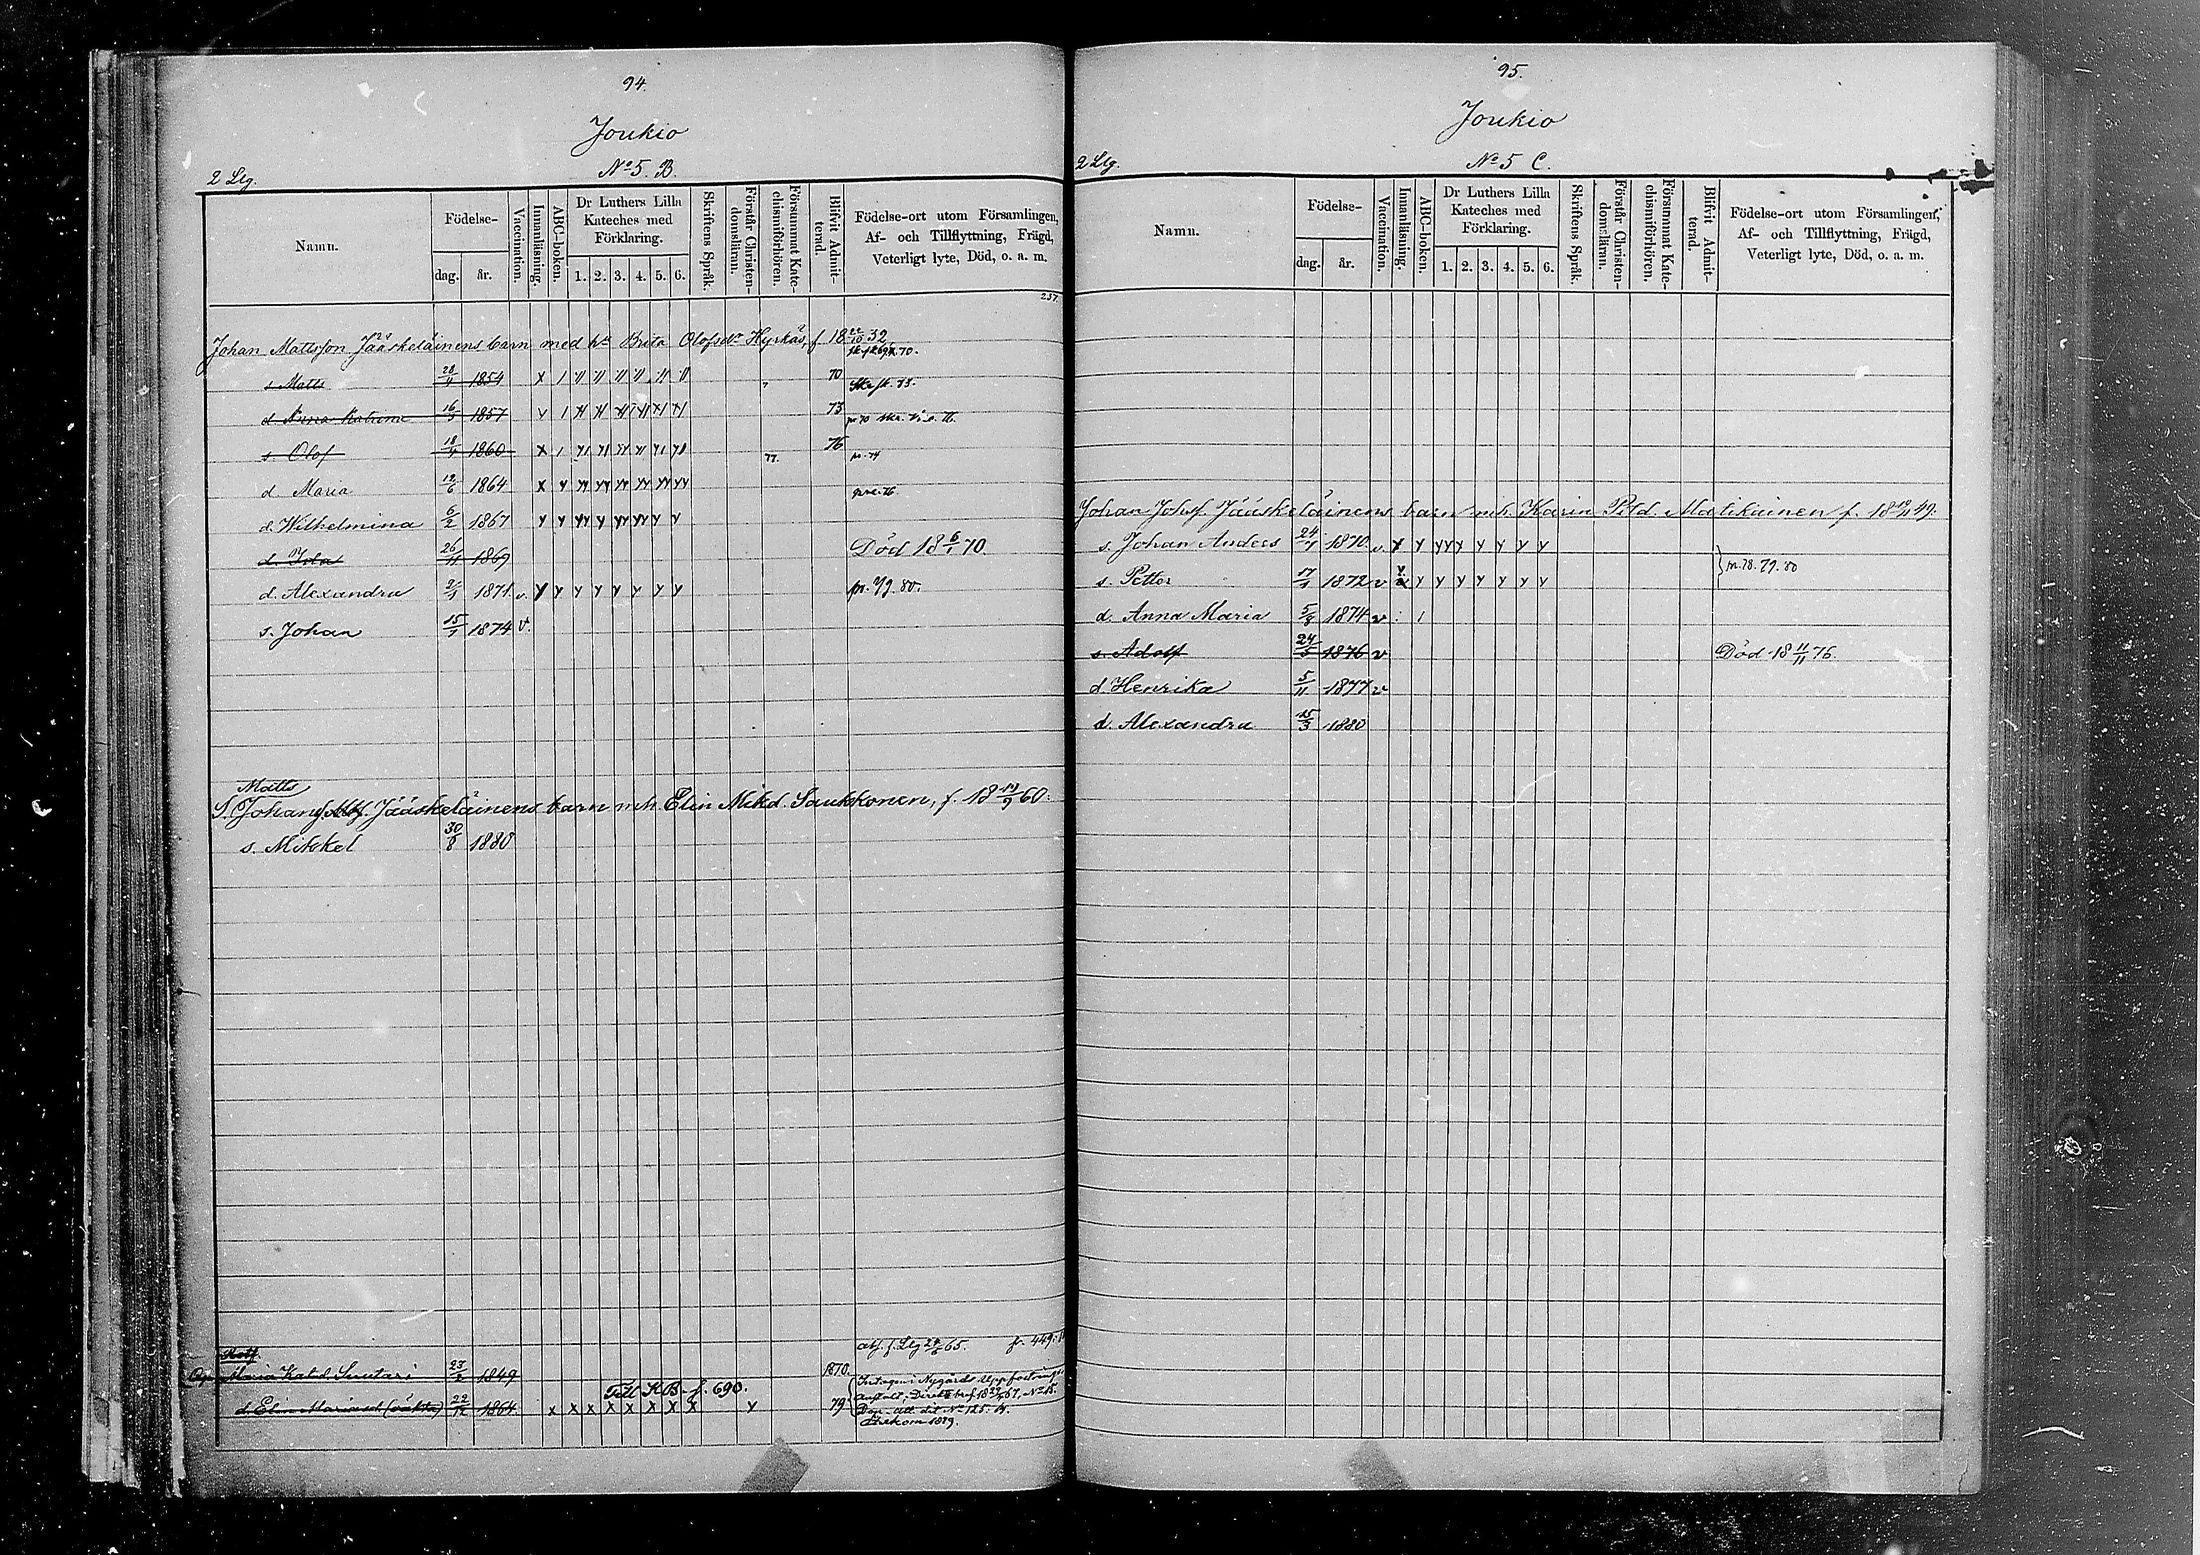 94.
Joukio
2 Llg.
No 5. B.
Namn.
Födelse-
dag.
år.
Vaccination.
Innanläsning.
ABC-boken.
Dr Luthers Lilla
Kateches med
Förklaring.
1. 2. 3. 4. 5. 6.
Skriftens Språk.
Förstår Christen-
domsläran.
Försummat Kate-
chismiförhören.
Blifvit Admit-
terad.
Födelse-ort utom Församlingen,
Af- och Tillflyttning, Frägd,
Veterligt lyte, Död, o. a. m.
237.
Johan Mattsson Jääskeläinens barn med hu Brita Olofsdr Hyrkäs, f 18 22/10 32.
s. Matts 28/11 1854 x 1 70
d Anna Katrina 16/3 1857 v 1 73
s. Olof 18/4 1860 x 1 77. 76
d Maria 12/6 1864 x y
d. Wilhelmina 6/2 1867 y y
d. Ida 26/11 1869 Död 18 6/1 70.
d. Alexandra 2/1 1871 v. y y y y y y y y pr. 79. 80.
s. Johan 15/1 1874 v.
Matts
S. Johans Jääskeläinens barn mh. Elin Mikd. Saukkonen, f. 18 19/9 60.
s. Mikkel 30/8 1880
abf. f. Llg 24/6 65. fr. 449.
Maria Katd Suutari 23/2 1849 1870.
Till KB. f. 690.
d. Elin Mariasd (oäkta) 22/12 1864 x x x x x x x x y 79.
95.
Joukio
2 Llg.
No 5 C.
Namn.
Födelse-
dag.
år.
Vaccination.
Innanläsning.
ABC-boken.
Dr Luthers Lilla
Kateches med
Förklaring.
1. 2. 3. 4. 5. 6.
Skriftens Språk.
Förstår Christen-
domsläran.
Försummat Kate-
chismiförhören.
Blifvit Admit-
terad.
Födelse-ort utom Församlingen,
Af- och Tillflyttning, Frägd,
Veterligt lyte, Död, o. a. m.
Johan Johsf. Jääskeläinens barn mh. Karin Petd. Matikainen f. 18 49.
s. Johan Anders 24/7 1870 v. x y y y y y y y y
s. Petter 17/1 1872 v y y y y y y y pr. 78. 79. 80
d. Anna Maria 5/8 1874 v 1
s. Adolf 24/5 1876 v Död 18 11/11 76.
d. Henrika 5/11 1877 v
d. Alexandra 15/3 1880